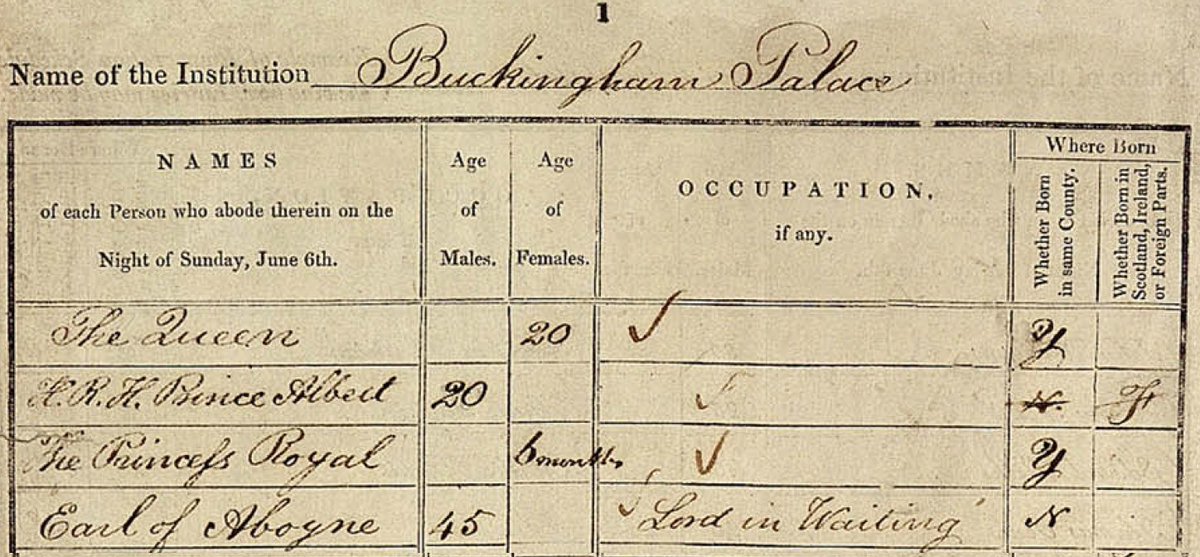 1
Name of the Institution Buckingham Palace
NAMES
of each Person who abode therein on the
Night of Sunday, June 6th.
Age
of
Males.
Age
of
Females.
OCCUPATION,
if any.
Where Born
Whether Born
in same County.
Whether Born in
Scotland, Ireland,
or Foreign Parts.
The Queen 20 Y
H.R.H. Prince Albert 20 N. F
The Princess Royal 6 months Y
Earl of Aboyne 45 Lord in Waiting N